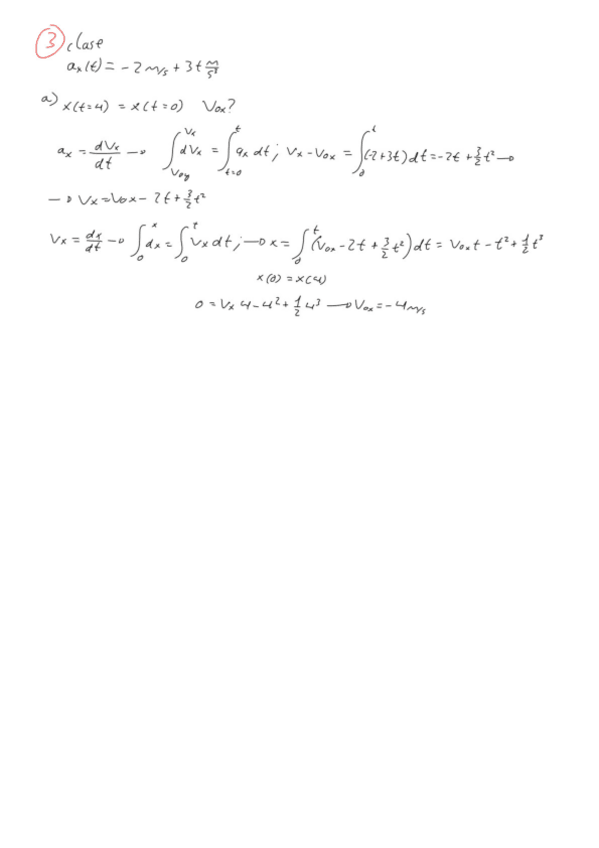 3 clase
aₓ(t) = -2 m/s + 3t m/s³
a) x(t=4) = x(t=0) V₀ₓ?
aₓ = dVₓ/dt → ∫_{V₀y}^{Vₓ} dVₓ = ∫_{t=0}^{t} aₓ dt ; Vₓ - V₀ₓ = ∫_0^t (-2+3t) dt = -2t + 3/2 t² →
→ Vₓ = V₀ₓ - 2t + 3/2 t²
Vₓ = dx/dt → ∫_0^x dx = ∫_0^t Vₓ dt ; → x = ∫_0^t (V₀ₓ - 2t + 3/2 t²) dt = V₀ₓt - t² + 1/2 t³
x(0) = x(4)
0 = Vₓ 4 - 4² + 1/2 4³ → V₀ₓ = -4 m/s